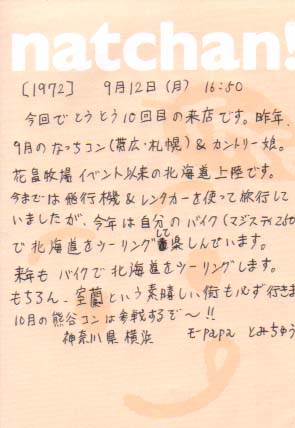 natchan!
[1972] 9月12日(月) 16:50
今回でとうとう10回目の来店です。昨年、
9月のなっちコン(帯広・札幌)&カントリー娘。
花畠牧場イベント以来の北海道上陸です。
今までは飛行機&レンタカーを使って旅行して
いましたが、今年は自分のバイク(マジェスティ250)
で北海道をツーリングして楽しんでいます。
来年もバイクで北海道をツーリングします。
もちろん、室蘭という素晴しい街も必ず行きます
10月の熊谷コンは参戦するぞ〜!!
神奈川県横浜 モーpapa とみちゅう